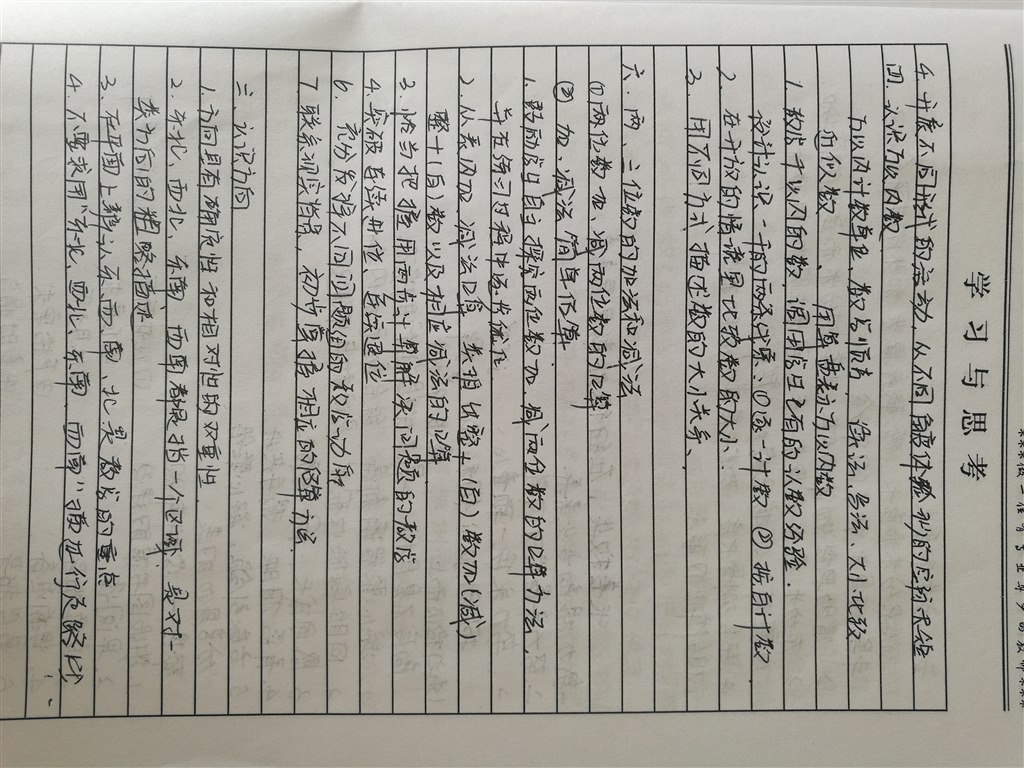 学习与思考
4.开展不同形式的活动,从不同角度体验秒的实际长短
四、认识万以内数
万以内计数单位、数的顺序、读法、写法、大小比较
近似数、用算盘表示万以内数
1.教学千以内的数,调用学生已有的认数经验.
设计认识一千的两条线索:①逐一计数 ②按百计数
2.在开放的情境里比较数的大小.
3.用不同方式描述数的大小关系、
六、两、三位数的加法和减法
(1)两位数加、减两位数的口算
② 加、减法简单估算
1.鼓励学生自主探究两位数加、减两位数的口算方法,
并在练习过程中逐步优化
2.从表内加、减法口算类推出整十(百)数加(减)
整十(百)数以及相应减法的口算
3.恰当把握用两步计算解决问题的教学
4.突破连续进位、连续退位
6.充分发挥不同问题的教学功能
7.联系现实情境,初步掌握相应的估算方法
三、认识方向
1.方向具有确定性和相对性的双重性
2.东北、西北、东南、西南都是指一个区域,是对一
类方向的粗略描述
3.在平面上辨认东、西、南、北是教学的重点
4.不要求用“东北、西北、东南、西南”描述行走路线